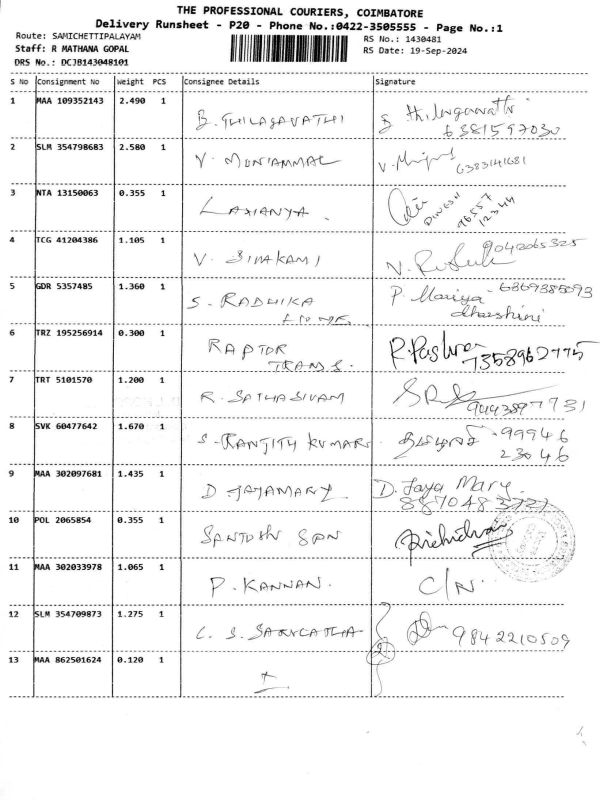 THE PROFESSIONAL COURIERS, COIMBATORE
Delivery Runsheet - P20 - Phone No.:0422-3505555 - Page No.:1
Route: SAMICHETTIPALAYAM
RS No.: 1430481
Staff: R MATHANA GOPAL
RS Date: 19-Sep-2024
DRS No.: DCJB143048101
S No Consignment No Weight PCS Consignee Details Signature
1 MAA 109352143 2.490 1 B. THILAGAVATHI
6381597030
2 SLM 354798683 2.580 1 V. MUNIAMMAL
6383141681
3 NTA 13150063 0.355 1 LAXIANYA.
DINESH
96557
12344
4 TCG 41204386 1.105 1 V. SIVAKAMI
9042065325
5 GDR 5357485 1.360 1 S. RADHIKA
P. Mariya
dharshini
6 TRZ 195256914 0.300 1 RAPTOR
TRANS.
7358962775
7 TRT 5101570 1.200 1 R. SATHASIVAM
9443897731
8 SVK 60477642 1.670 1 S. RANJITH KUMAR 99946
23046
9 MAA 302097681 1.435 1 D JAYAMARY D. Jaya Mary.
8870483727
10 POL 2065854 0.355 1 SANTOSH SON
11 MAA 302033978 1.065 1 P. KANNAN. C/N.
12 SLM 354709873 1.275 1
9842210509
13 MAA 862501624 0.120 1
2